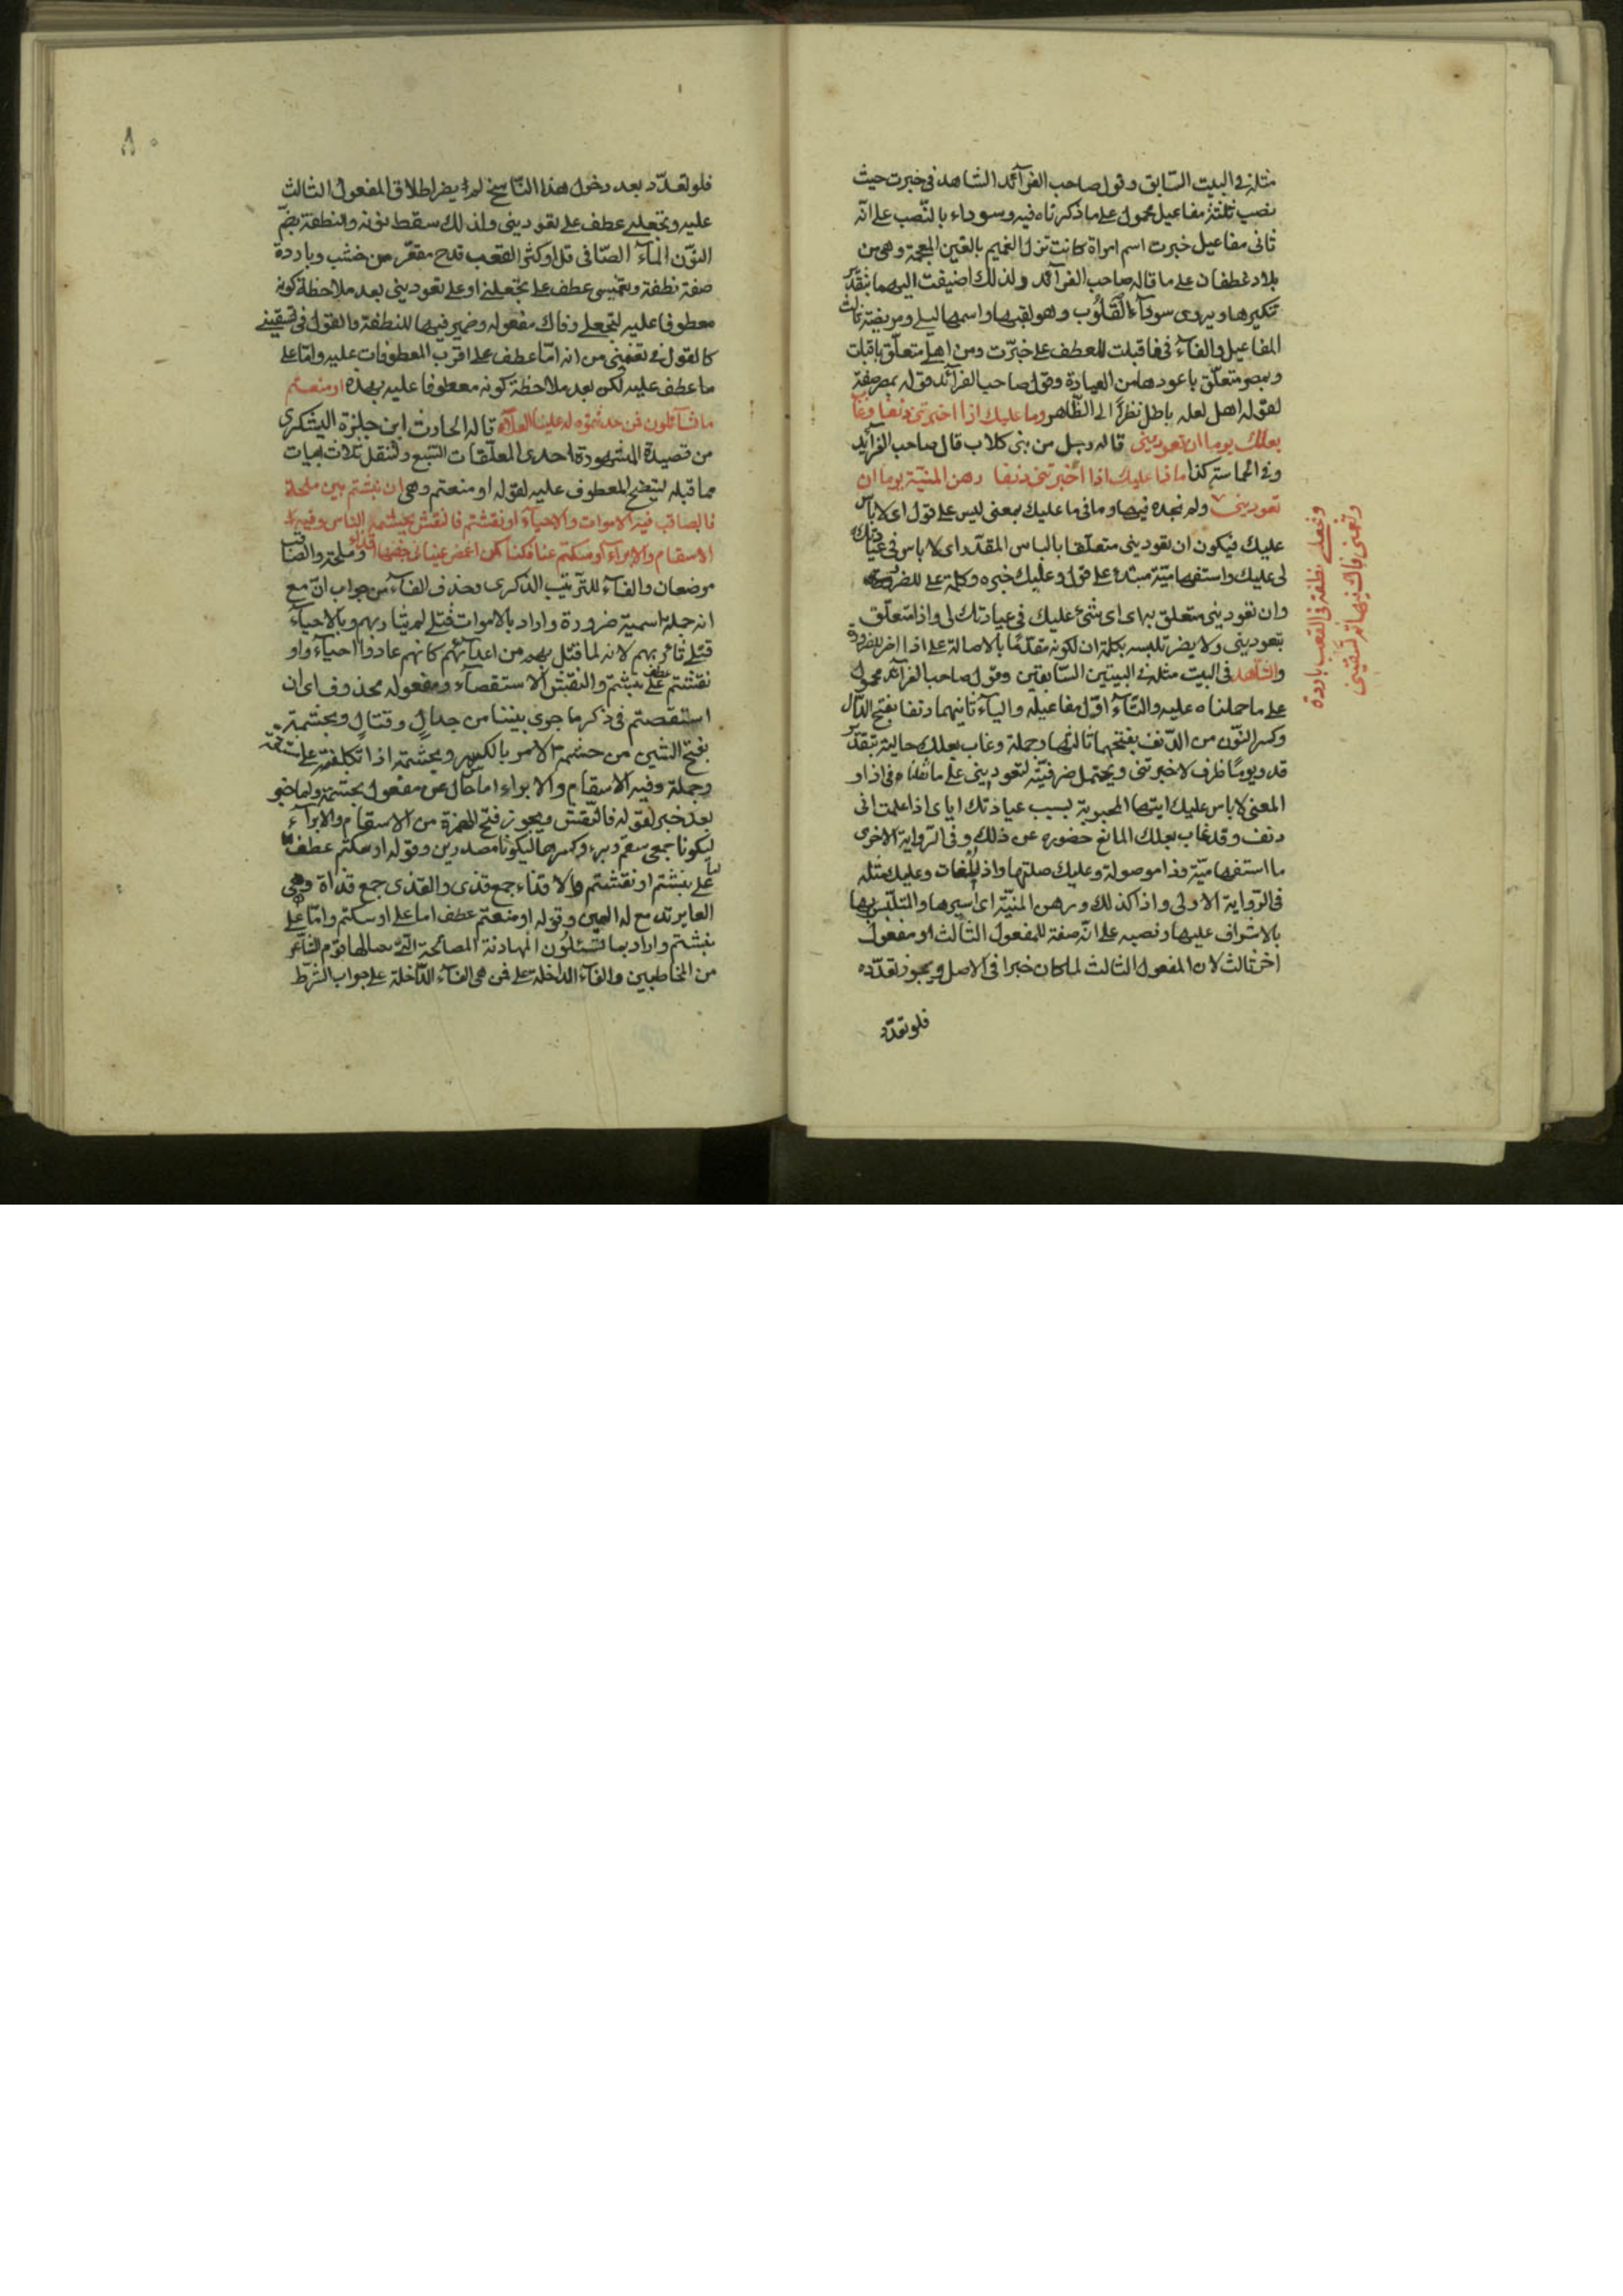 مثله في البيت السابق وقول صاحب الفرآئد الشاهد في خبرت حيث
نصب ثلثة مفاعيل محمول على ما ذكرناه فيه وسوداء بالنّصب على انّه
ثانى مفاعيل خبرت اسم امراة كانت تنزل الغميم بالغين المعجمة وهى من
بلاد غطفان على ما قاله صاحب الفرآئد ولذلك اضيفت اليهما بتقدير
تنكيرها ويروى سودآء القلوب وهو لقبها واسمها ليلى ومريضة ثالث
المفاعيل والفآء في فاقبلت للعطف على خبّرت ومن اهلى متعلّق باقبلت
وبمصر متعلّق باعودها من العيادة وقول صاحب الفرآئد قوله بمصر صفة
لقوله اهل لعله باطل نظرًا الى الظّاهر وما عليك اذا اخبرتنى دنفا وغا
بعلك يوما ان تعودينى قاله رجل من بنى كلاب قال صاحب الفرآيد
وفى الحماسة كذا ماذا عليك اذا أخبرتنى دنفا رهن المنيّة يوما ان
تعودينى ولم نجده فيها وما فى ما عليك بمعنى ليس على قول اى لا باس
عليك فيكون ان تعودينى متعلّقا بالباس المقدّر اى لا باس فى عيادتك
لى عليك واستفهاميّة مبتدء على قول وعليك خبره وكلمة على للضرر
وان تعودينى متعلق به اى اى شئ عليك فى عيادتك لى واذا متعلّق
بتعودينى ولا يضر تلبسه بكلمة ان لكونه مقدّمًا بالاصالة على اذا اخر للضرورة
والشاهد فى البيت مثله فى البيتين السّابقين وقول صاحب الفرآئد محمول
على ما حملناه عليه والتّآء اوّل مفاعيله واليآء ثانيهما ودنفا بفتح الدّال
وكسر النّون من الدّنف بفتحهما ثالثها وجملة وغاب بعلك حالية بتقدير
قد ويومًا ظرف لاخبرتنى ويحتمل ضرفيّته لتعودينى على ما قلناه فى اذا و
المعنى لا باس عليك ايتها المحبوبة بسبب عيادتك اياى اذا علمت انى
دنف وقد غاب بعلك المانع حضوره عن ذلك وفى الرّواية الاخرى
ما استفهاميّة وذا موصولة وعليك صلتها واذا وعليك مثله
فى الرّواية الاولى واذا كذلك ورهن المنيّة اى اسيرها والمتلبّس بها
بالاشراف عليها ونصبه على انّه صفة للمفعول الثّالث او مفعول
اخر ثالث لان المفعول الثالث لما كان خبرا فى الاصل ويجوز تعدّده
فلو تعدّد
وتجعلى نطفة فى القعب باردة
وتغمسى فاك فيها ثم تسقينى
٨٠
فلو تعدّد بعد دخول هذا النّاسخ له لم يضر اطلاق المفعول الثالث
عليه وتجعلى عطف على تعودينى ولذلك سقط نونه والنطفة بضمّ
النّون المآء الصّافى قل او كثر القعب قدح مقعّر من خشب وباردة
صفة نطفة وتغمسى عطف على تجعلى او على تعودينى بعد ملاحظة كونه
معطوفا عليه لتجعلى وفاك مفعوله وضمير فيها للنطفة والقول فى تسقينى
كالقول فى تغمسى من انه امّا عطف على اقرب المعطوفات عليه وامّا على
ما عطف عليه لكن بعد ملاحظة كونه معطوفا عليه بهذه او منعتم
ما تسآئلون فمن حدثتموه له علينا العلآء قاله الحارث ابن حلزة اليشكرى
من قصيدة المشهورة احدى المعلّقات السّبع ولننقل ثلاث ابيات
مما قبله ليتضح المعطوف عليه لقوله او منعتم وهى ان نبشتم بين ملحة
فالصاقب فيه الاموات والاحيآء او نقشتم فالنقش يجشمه الناس وفيه
الاسقام والابراء او سكتم عنا فكنا كمن اغمض عينا فى جفنها اقذاء وملحة والصّاقب
موضعان والفآء للتّرتيب الذكرى وحذف الفآء من جواب انّ مع
انه جملة اسمية ضرورة واراد بالاموات قتلى لم يثار بهم وبالاحيآء
قتلى ثائر بهم لانه لما قتل بهم من اعدآئهم كانهم عادوا احيآء واو
نقشتم عطف على نبشتم والنقش الاستقصآء ومفعوله محذوف اى ان
استقصتم فى ذكر ما جرى بيننا من جدال وقتال ويجشمه
بفتح الشين من جشمه الامر بالكسر ويجشمه اذا تكلفته على مشقة
وجملة وفيه الاسقام والابراء اما حال عن مفعول يجشمه واما خبر
بعد خبر لقوله فالنّقش ويجوز فتح الهمزة من الاسقام والابرآء
ليكونا جمعى سقم وبرء وكسرها ليكونا مصدرين وقوله او سكتم عطف
على نبشتم او نقشتم والاقذاء جمع قذى والقذى جمع قذاة وهى
له العين وقوله او منعتم عطف اما على او سكتم وامّا على
نبشتم واراد بما تسئلون المهادنة المصالحة الّتى
من المخاطبين والفآء الداخلة على فمن هى الفآء الدّاخلة على جواب الشّرط